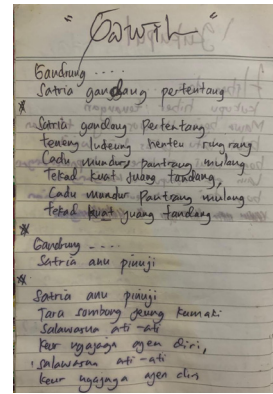 " Gawil "
Gandrung ....
Satria gandang pertentang
Satria gandang Pertentang
teneng ludeung henteu rungrang
Cadu mundur pantrang mulang
Tekad kuat juang tandang,
Cadu mundur Pantrang mulang
Tekad kuat juang tandang
Gandrung ----
Satria anu pinuji
Satria anu pinuji
Tara sombong jeung kumaki
Salawasna ati-ati
Keur ngajaga ajen diri,
salawasna ati-ati
Keur ngajaga ajen diri